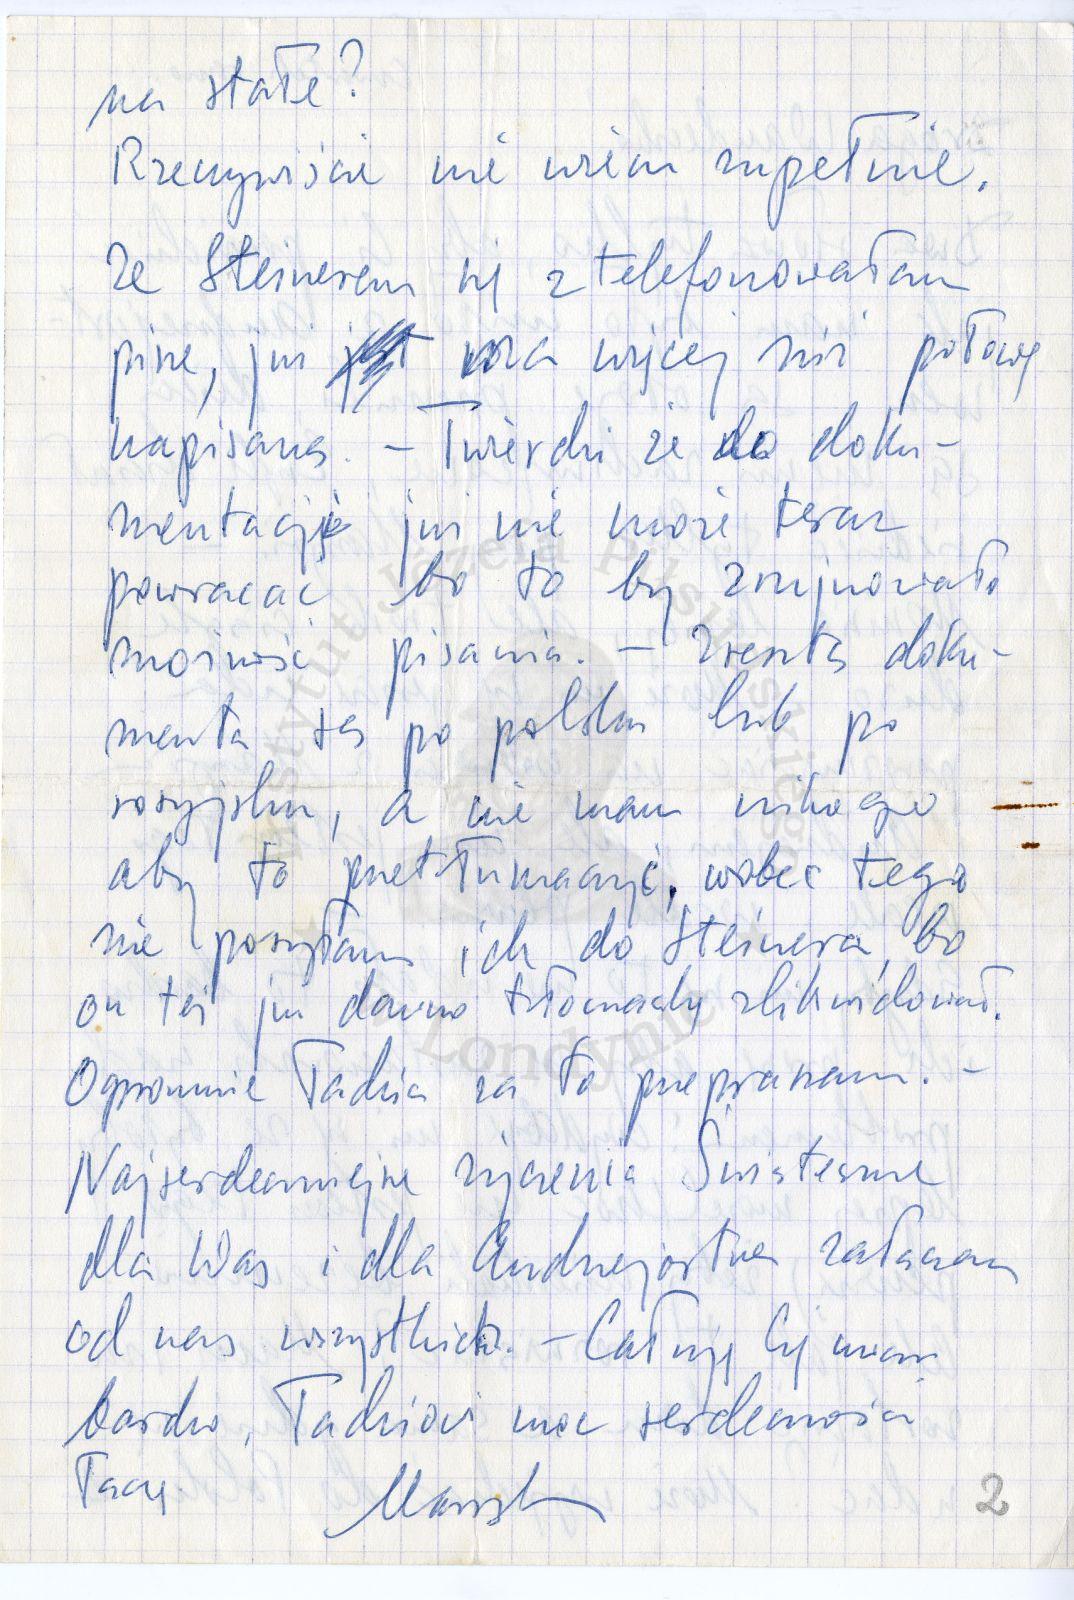 na stałe?
Rzeczywiście nie wiem zupełnie.
Ze Steinerem się ztelefonowałam
pisze, już ma więcej niż połowę
napisaną. – Twierdzi że do doku-
mentacji już nie może teraz
powracać bo to by zrujnowało
możność pisania. – Zresztą doku-
menta są po polsku lub po
rosyjsku, a nie mam nikogo
aby to przetłumaczyć, wobec tego
nie posyłam ich do Steinera, bo
on też już dawno tłomaczy zlikwidował.
Ogromnie Tadzia za to przepraszam. –
Najserdeczniejsze życzenia Świąteczne
dla Was i dla Andrzejostwa załączam
od nas wszystkich. – Całuję Cię moc
bardzo, Tadziowi moc serdeczności
łączę
2
Instytut Józefa Piłsudskiego
w Londynie